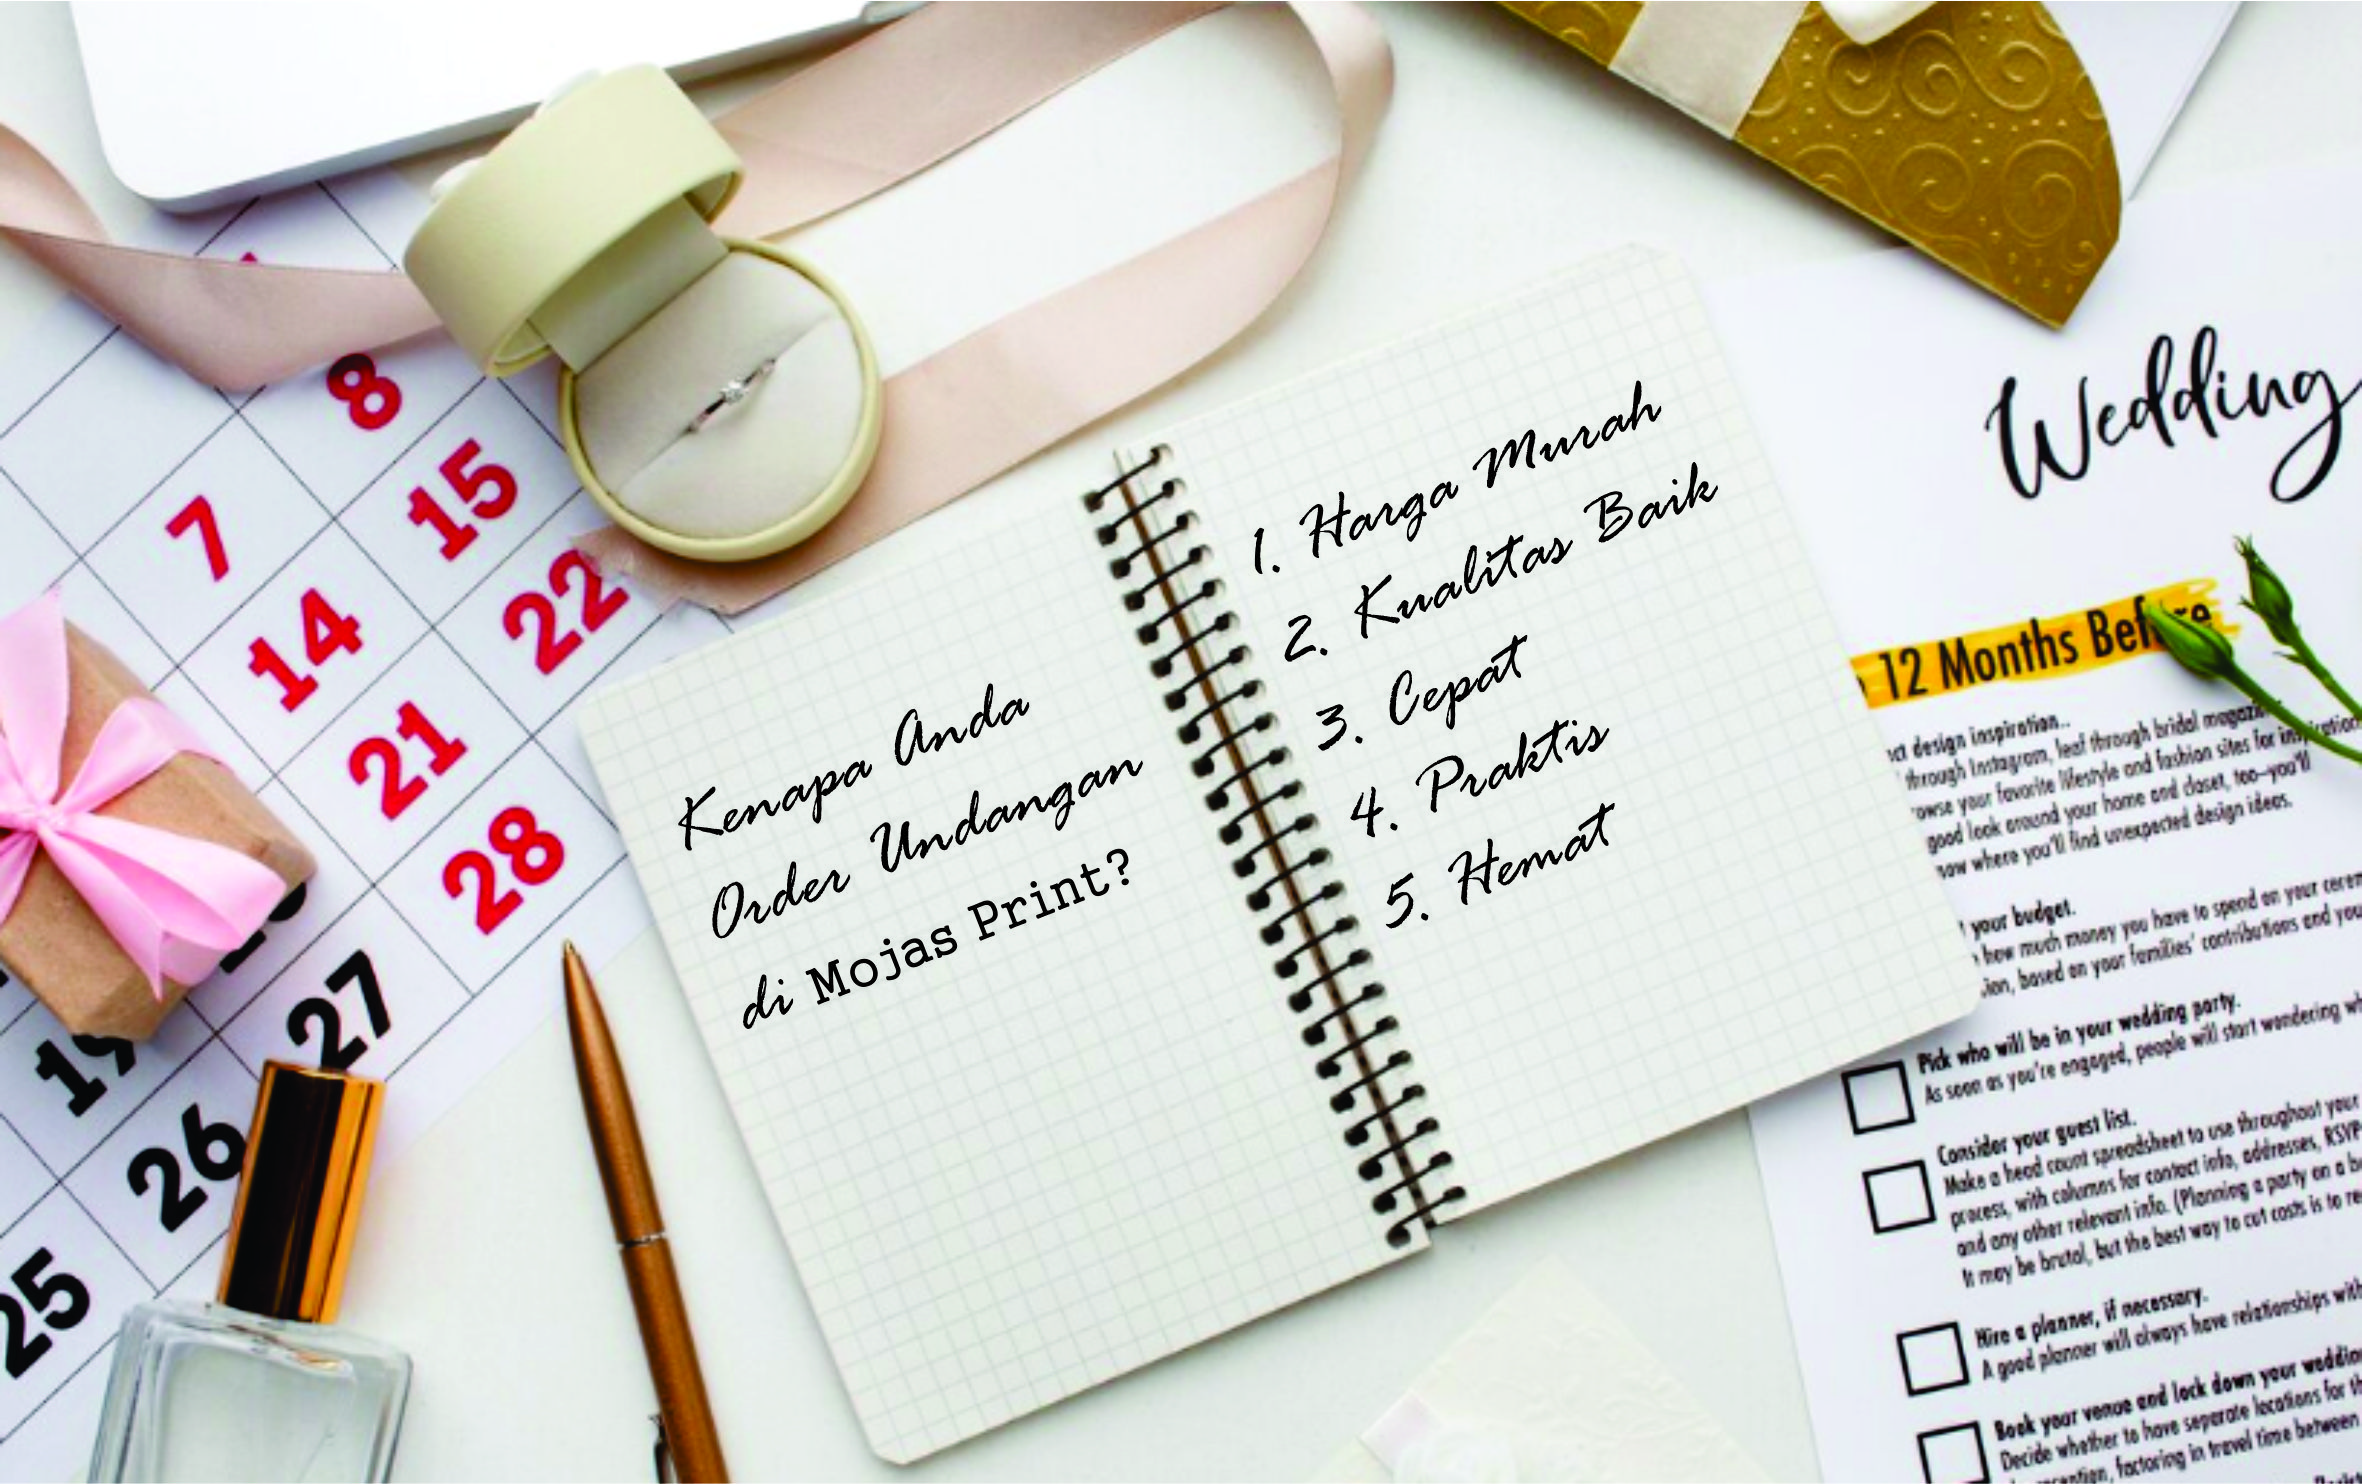 8
7
15
14
22
21
28
19
27
26
25
Kenapa Anda
Order Undangan
di Mojas Print?
1. Harga Murah
2. Kualitas Baik
3. Cepat
4. Praktis
5. Hemat
Wedding
12 Months Before
design inspiration..
through Instagram, leaf through bridal
your favorite lifestyle and fashion sites for
good look around your home and closet, too—you'll
where you'll find unexpected design ideas.
your budget.
how much money you have to spend on your
based on your families' contributions and
Pick who will be in your wedding party.
As soon as you're engaged, people will start wondering
Consider your guest list.
Make a head count spreadsheet to use throughout your
process, with columns for contact info, addresses, RSVP
and any other relevant info. (Planning a party on a
It may be brutal, but the best way to cut costs is to
Hire a planner, if necessary.
A good planner will always have relationships with
Book your venue and lock down your
Decide whether to have separate locations for
factoring in travel time between